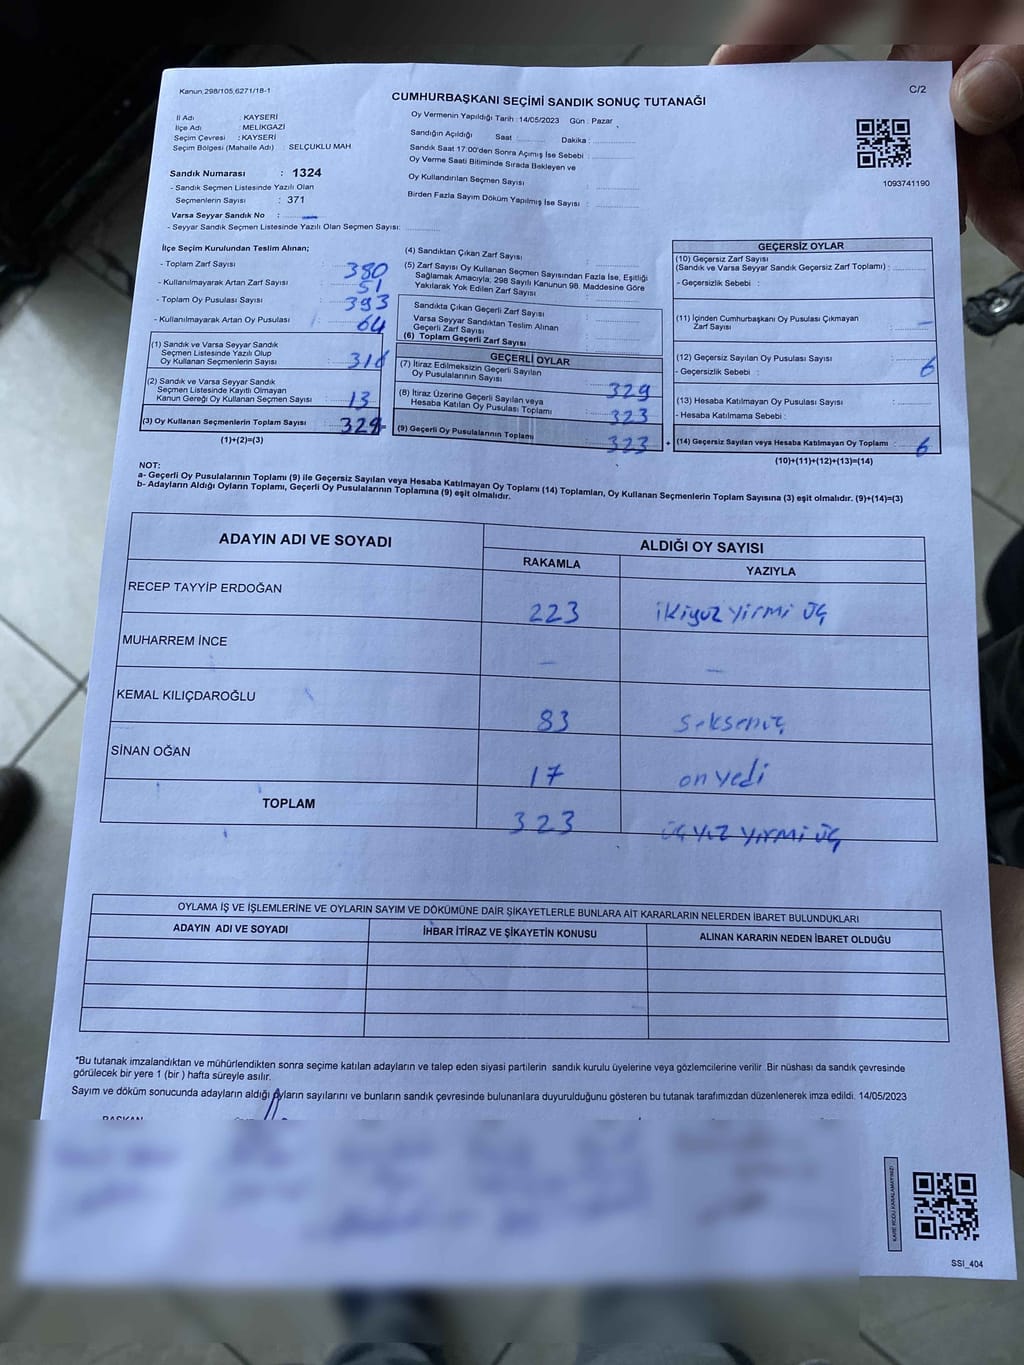 Kanun 298/105,6271/18-1
C/2
CUMHURBAŞKANI SEÇİMİ SANDIK SONUÇ TUTANAĞI
İl Adı : KAYSERİ
İlçe Adı : MELİKGAZİ
Seçim Çevresi : KAYSERİ
Seçim Bölgesi (Mahalle Adı) : SELÇUKLU MAH
Sandık Numarası : 1324
- Sandık Seçmen Listesinde Yazılı Olan
Seçmenlerin Sayısı : 371
Varsa Seyyar Sandık No : —
- Seyyar Sandık Seçmen Listesinde Yazılı Olan Seçmen Sayısı:
Oy Vermenin Yapıldığı Tarih :14/05/2023 Gün : Pazar
Sandığın Açıldığı Saat Dakika :
Sandık Saat 17:00'den Sonra Açımış İse Sebebi :
Oy Verme Saati Bitiminde Sırada Bekleyen ve
Oy Kullandırılan Seçmen Sayısı :
Birden Fazla Sayım Döküm Yapılmış İse Sayısı :
1093741190
İlçe Seçim Kurulundan Teslim Alınan;
- Toplam Zarf Sayısı : 380
- Kullanılmayarak Artan Zarf Sayısı : 51
- Toplam Oy Pusulası Sayısı : 393
- Kullanılmayarak Artan Oy Pusulası : 64
(1) Sandık ve Varsa Seyyar Sandık
Seçmen Listesinde Yazılı Olup
Oy Kullanan Seçmenlerin Sayısı : 316
(2) Sandık ve Varsa Seyyar Sandık
Seçmen Listesinde Kayıtlı Olmayan
Kanun Gereği Oy Kullanan Seçmen Sayısı : 13
(3) Oy Kullanan Seçmenlerin Toplam Sayısı : 329
(1)+(2)=(3)
(4) Sandıktan Çıkan Zarf Sayısı :
(5) Zarf Sayısı Oy Kullanan Seçmen Sayısından Fazla İse, Eşitliği
Sağlamak Amacıyla; 298 Sayılı Kanunun 98. Maddesine Göre
Yakılarak Yok Edilen Zarf Sayısı :
Sandıkta Çıkan Geçerli Zarf Sayısı :
Varsa Seyyar Sandıktan Teslim Alınan
Geçerli Zarf Sayısı :
(6) Toplam Geçerli Zarf Sayısı :
GEÇERLİ OYLAR
(7) İtiraz Edilmeksizin Geçerli Sayılan
Oy Pusulalarının Sayısı : 329
(8) İtiraz Üzerine Geçerli Sayılan veya
Hesaba Katılan Oy Pusulası Toplamı : 323
(9) Geçerli Oy Pusulalarının Toplamı : 323
+
GEÇERSİZ OYLAR
(10) Geçersiz Zarf Sayısı
(Sandık ve Varsa Seyyar Sandık Geçersiz Zarf Toplamı) :
- Geçersizlik Sebebi :
(11) İçinden Cumhurbaşkanı Oy Pusulası Çıkmayan
Zarf Sayısı : —
(12) Geçersiz Sayılan Oy Pusulası Sayısı : 6
- Geçersizlik Sebebi :
(13) Hesaba Katılmayan Oy Pusulası Sayısı :
- Hesaba Katılmama Sebebi :
(14) Geçersiz Sayılan veya Hesaba Katılmayan Oy Toplamı : 6
(10)+(11)+(12)+(13)=(14)
NOT:
a- Geçerli Oy Pusulalarının Toplamı (9) ile Geçersiz Sayılan veya Hesaba Katılmayan Oy Toplamı (14) Toplamları, Oy Kullanan Seçmenlerin Toplam Sayısına (3) eşit olmalıdır. (9)+(14)=(3)
b- Adayların Aldığı Oyların Toplamı, Geçerli Oy Pusulalarının Toplamına (9) eşit olmalıdır.
ADAYIN ADI VE SOYADI
ALDIĞI OY SAYISI
RAKAMLA YAZIYLA
RECEP TAYYİP ERDOĞAN 223 ikiyüz yirmi üç
MUHARREM İNCE — —
KEMAL KILIÇDAROĞLU 83 seksenüç
SİNAN OĞAN 17 on yedi
TOPLAM 323 üçyüz yirmi üç
OYLAMA İŞ VE İŞLEMLERİNE VE OYLARIN SAYIM VE DÖKÜMÜNE DAİR ŞİKAYETLERLE BUNLARA AİT KARARLARIN NELERDEN İBARET BULUNDUKLARI
ADAYIN ADI VE SOYADI İHBAR İTİRAZ VE ŞİKAYETİN KONUSU ALINAN KARARIN NEDEN İBARET OLDUĞU
*Bu tutanak imzalandıktan ve mühürlendikten sonra seçime katılan adayların ve talep eden siyasi partilerin sandık kurulu üyelerine veya gözlemcilerine verilir. Bir nüshası da sandık çevresinde
görülecek bir yere 1 (bir ) hafta süreyle asılır.
Sayım ve döküm sonucunda adayların aldığı oyların sayılarını ve bunların sandık çevresinde bulunanlara duyurulduğunu gösteren bu tutanak tarafımızdan düzenlenerek imza edildi. 14/05/2023
BAŞKAN
KARE KODU KARALAMAYINIZ!
SSI_404